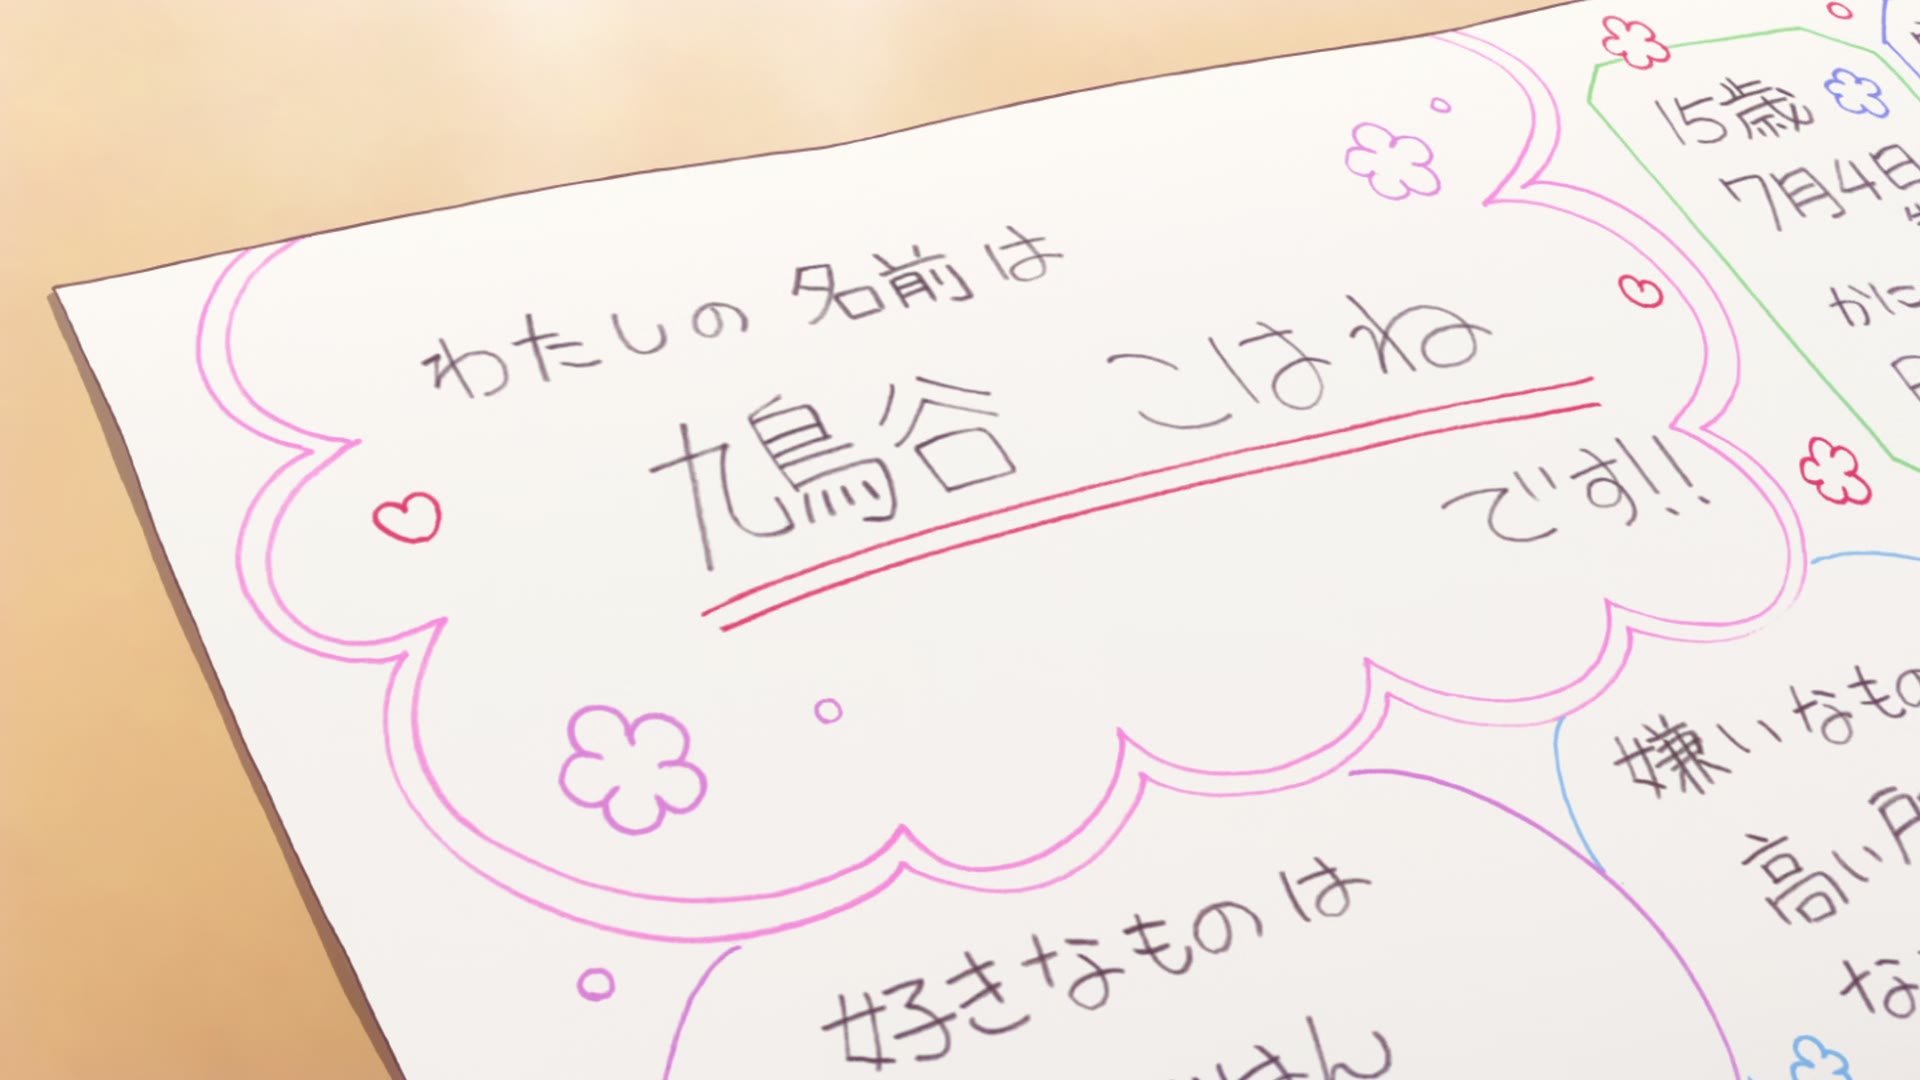 わたしの 名前は
鳩谷 こはね
です!!
15歳
7月4日
かに
嫌いなもの
高い所
な
好きなものは
はん